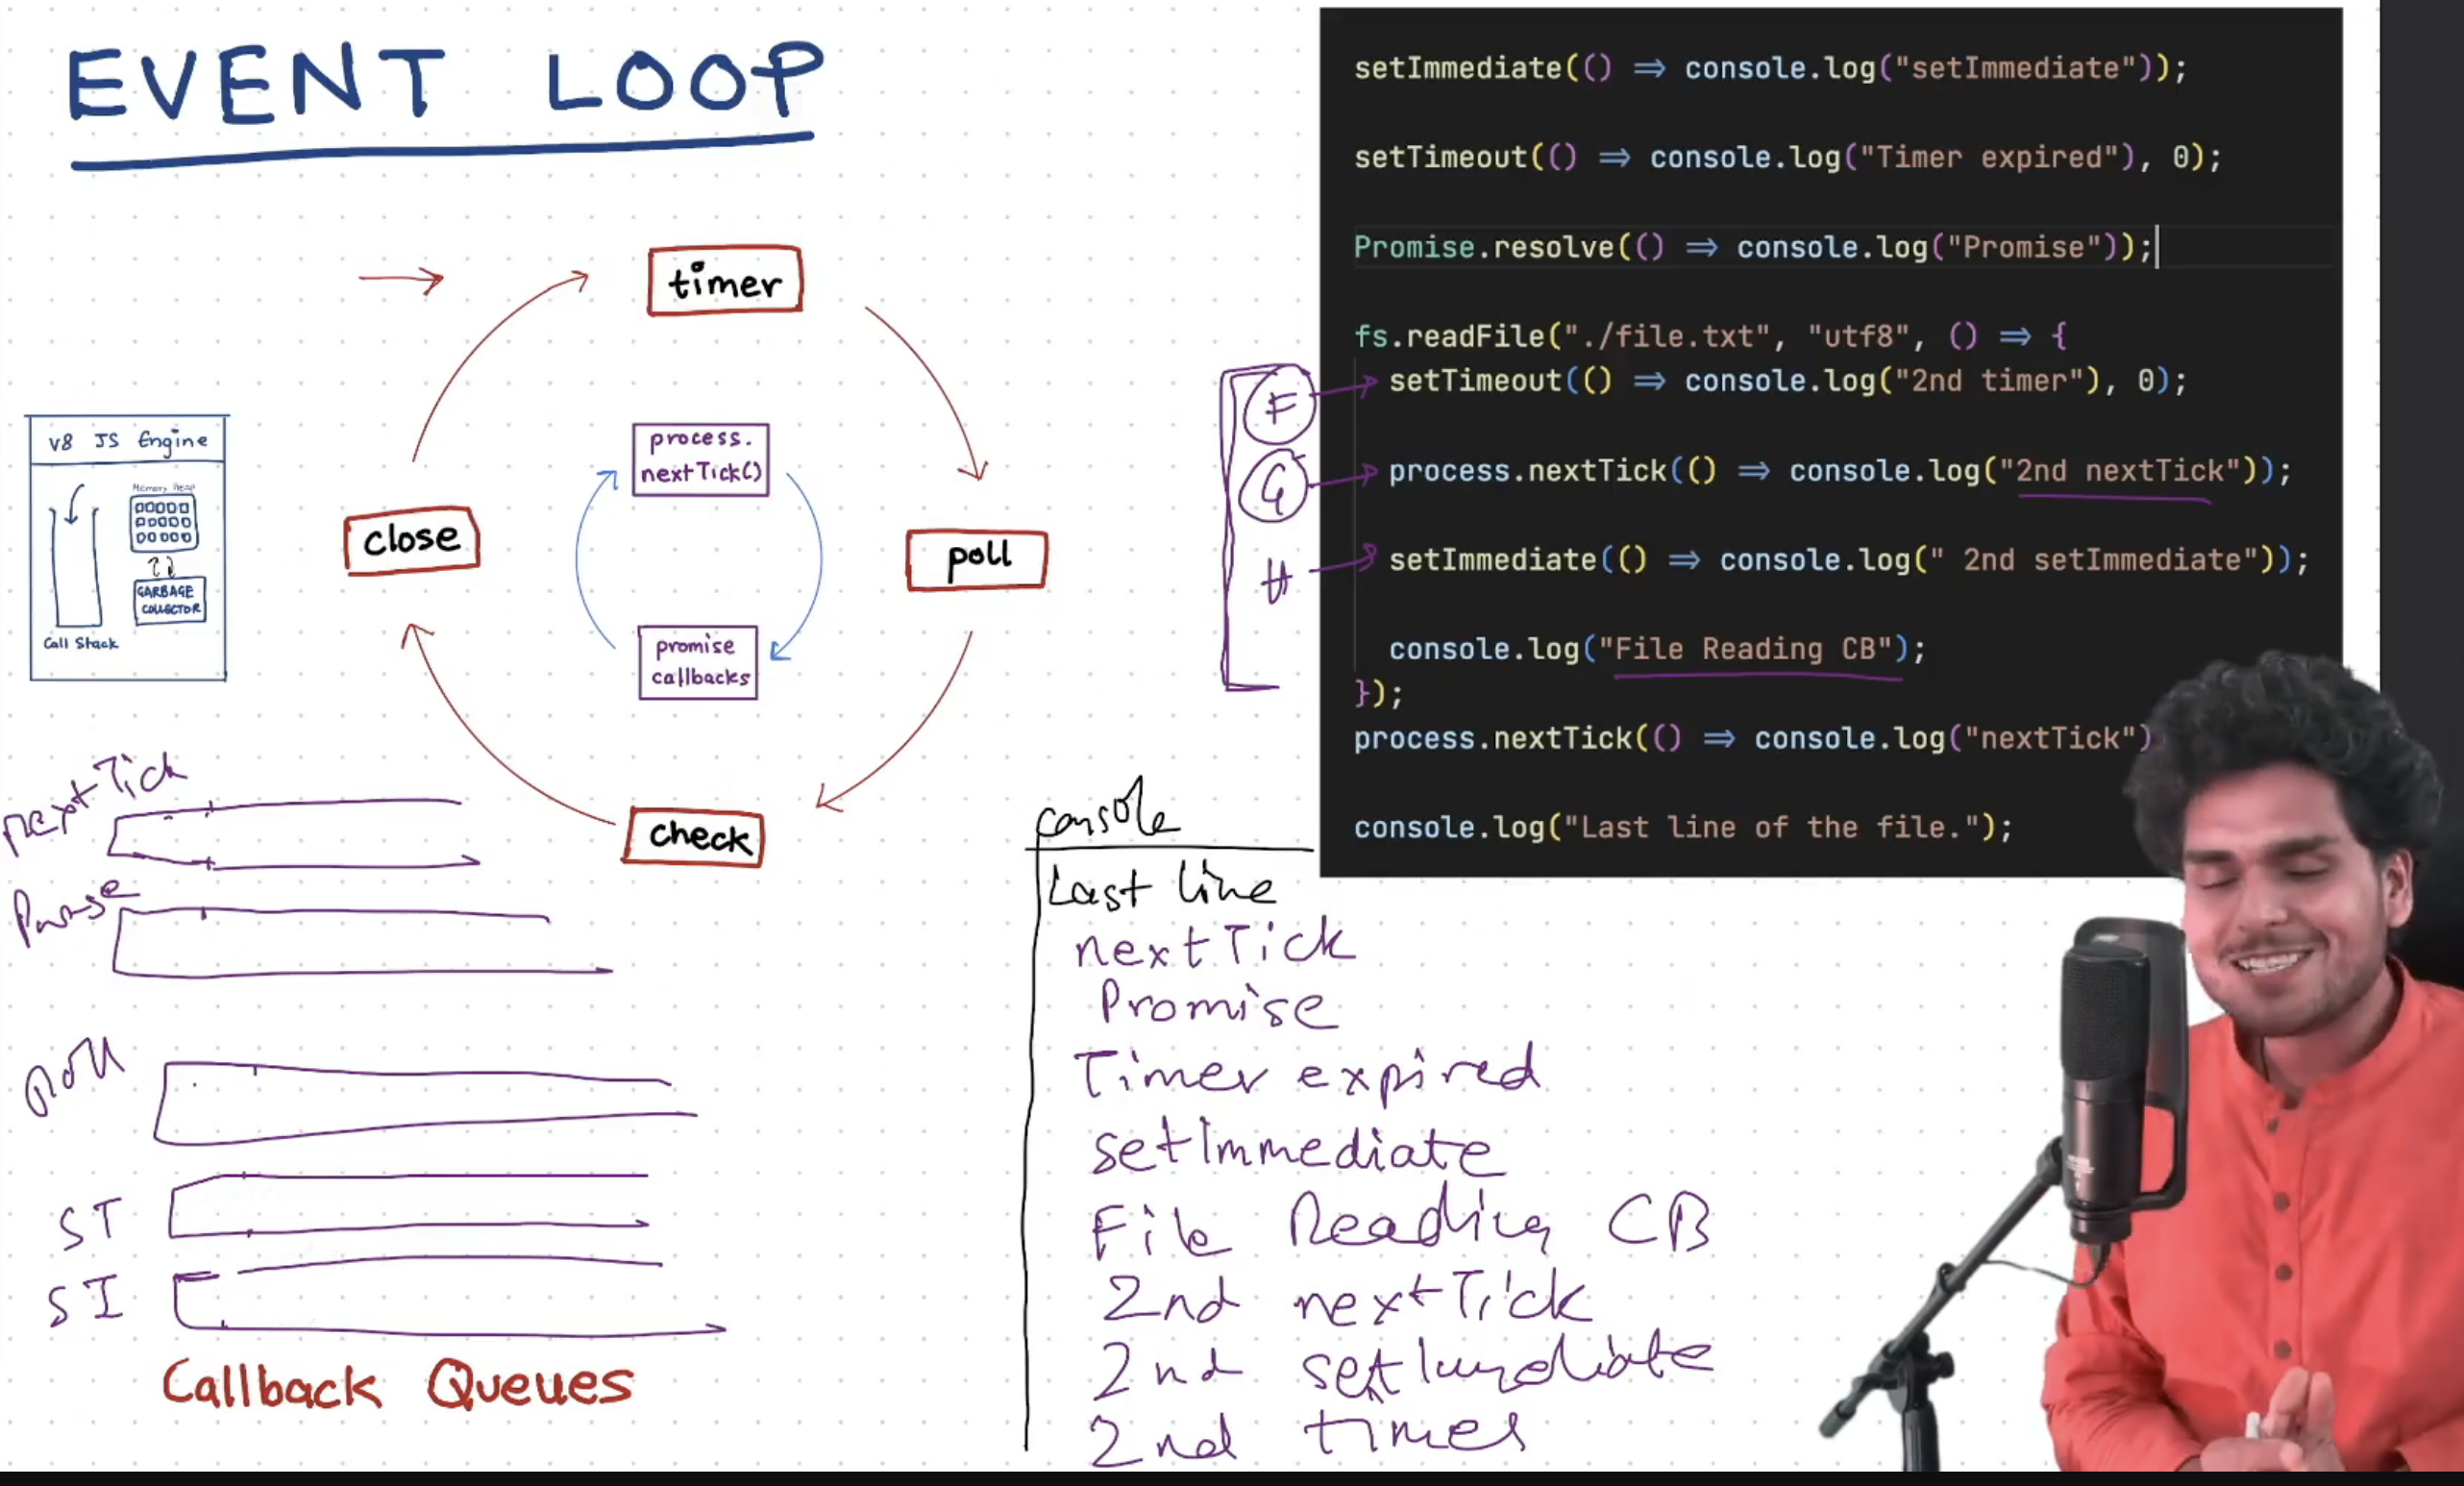 EVENT LOOP
timer
poll
check
close
process.
nextTick()
promise
callbacks
V8 JS Engine
Memory Heap
GARBAGE
COLLECTOR
Call Stack
nextTick
Poll
ST
SI
Callback Queues
setImmediate(() ⇒ console.log("setImmediate"));
setTimeout(() ⇒ console.log("Timer expired"), 0);
Promise.resolve(() ⇒ console.log("Promise"));
fs.readFile("./file.txt", "utf8", () ⇒ {
F
setTimeout(() ⇒ console.log("2nd timer"), 0);
G
process.nextTick(() ⇒ console.log("2nd nextTick"));
H
setImmediate(() ⇒ console.log(" 2nd setImmediate"));
console.log("File Reading CB");
});
process.nextTick(() ⇒ console.log("nextTick")
console.log("Last line of the file.");
console
Last line
nextTick
Promise
Timer expired
setImmediate
File Reading CB
2nd nextTick
2nd setImmediate
2nd timer